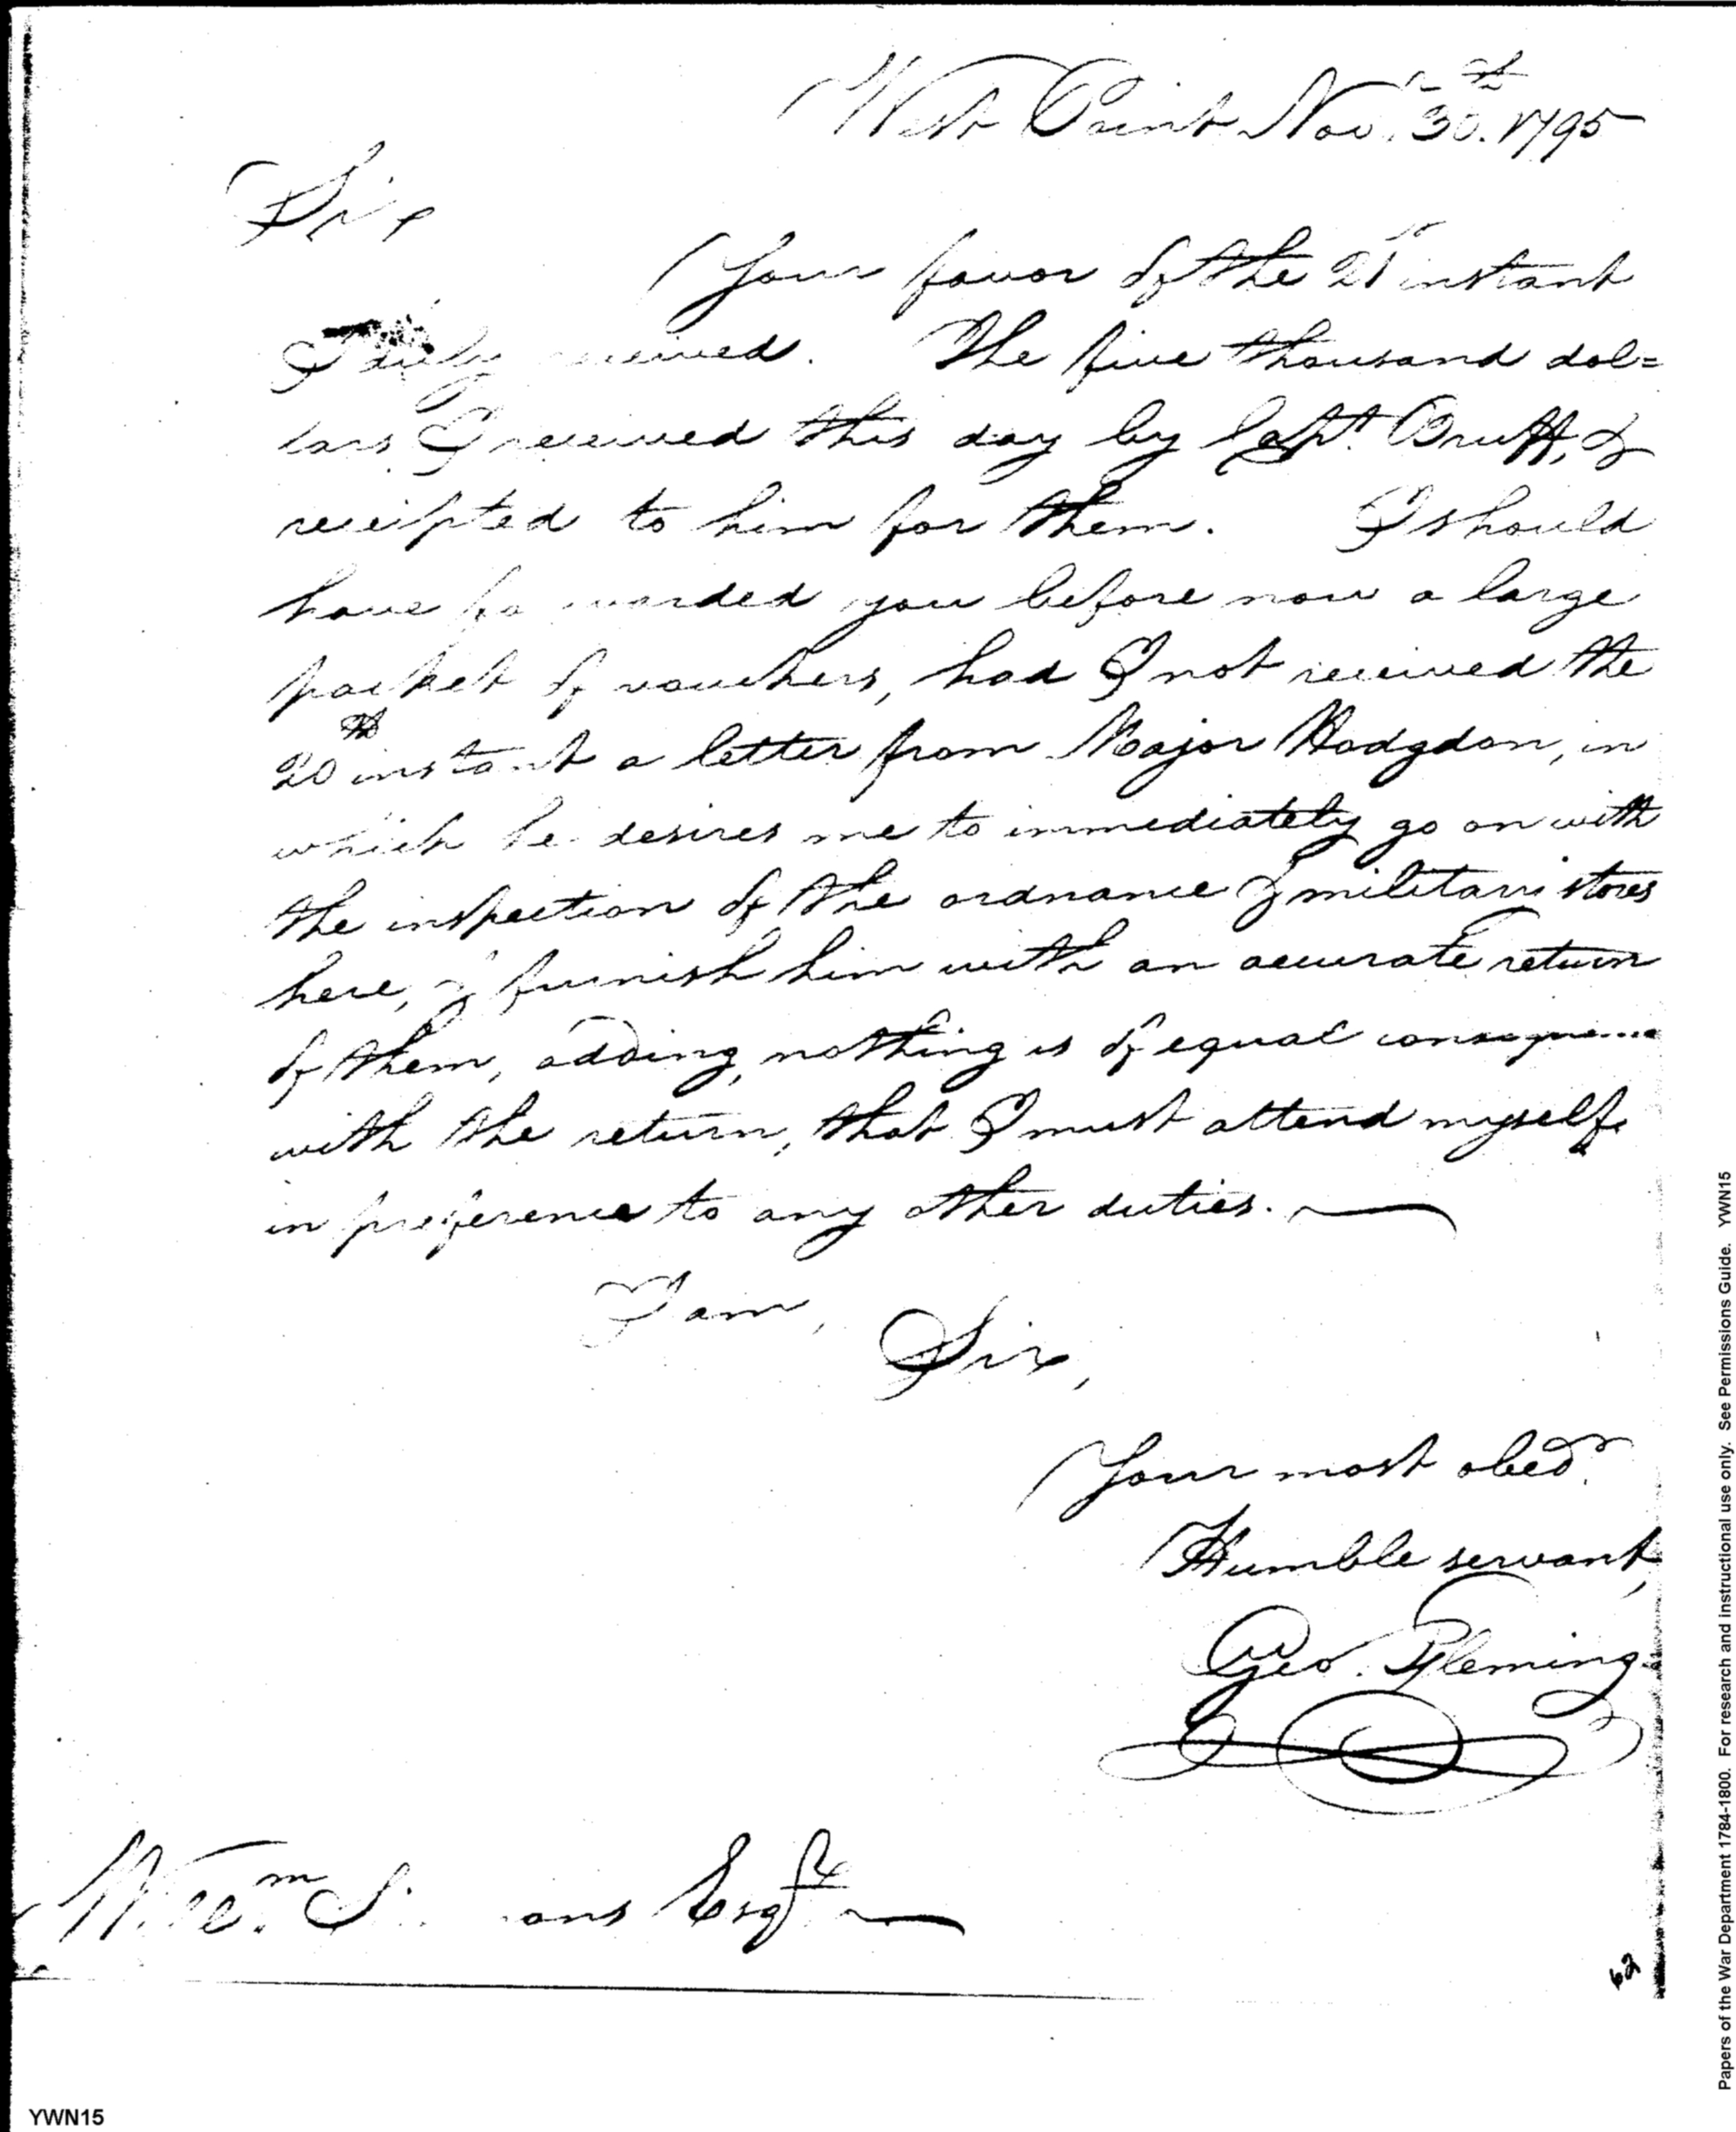 West Point Novr. 30th. 1795
Sir
Your favor of the 21st instant
I duly received. The five thousand dol=
lars I received this day by Capt. Bruff, &
receipted to him for them. I should
have forwarded you before now a large
packet of vouchers, had I not received the
20th instant a letter from Major Hodgdon, in
which he desires me to immediately go on with
the inspection of the ordnance & military stores
here, & furnish him with an accurate return
of them, adding, nothing is of equal consequence
with the return, that I must attend myself
in preference to any other duties.
I am,
Sir,
Your most obedt.
Humble servant,
Geo. Fleming
Willm. Simmons Esqr.
62
YWN15
Papers of the War Department 1784-1800. For research and instructional use only. See Permissions Guide. YWN15